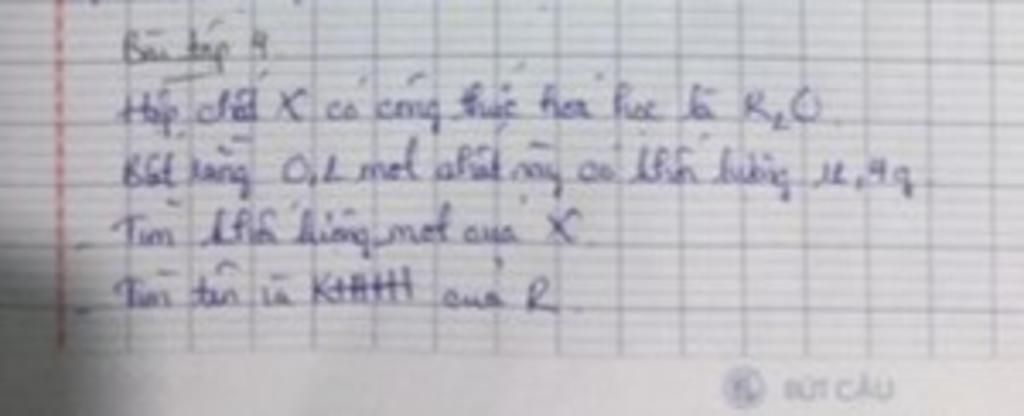 Bài tập 4
Hợp chất X có công thức hoá học là R₂O
Biết rằng 0,2 mol chất này có khối lượng 12,4g
- Tìm khối lượng mol của X
- Tìm tên và KHHH của R
BÚT CẦU